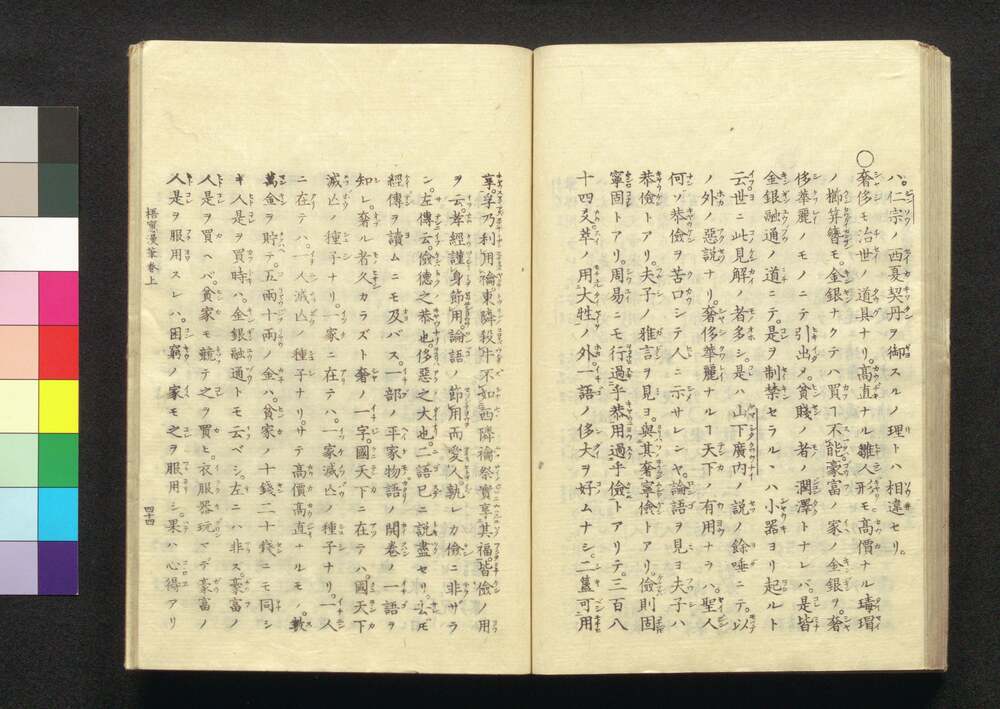 ハ。仁宗ノ西夏契丹ヲ御スルノ理トハ相違セリ。
○奢侈モ治世ノ道具ナリ。高直ナル雛人形モ。高價ナル瑇瑁
ノ櫛笄簪モ。金銀ナクテハ買フヿ不能。豪富ノ家ノ金銀ヲ。奢
侈華麗ノモノニテ引出シ。貧賤ノ者ノ潤澤トナレバ。是皆
金銀融通ノ道ニテ。是ヲ制禁セラルヽハ小器ヨリ起ルト
云。世ニ此見解ノ者多シ。是ハ山下廣内ノ説ノ餘唾ニテ。以
ノ外ノ惡説ナリ。奢侈華麗ナルヿ天下ノ有用ナラハ。聖人
何ソ恭儉ヲ苦口シテ人ニ示サレンヤ。論語ヲ見ヨ夫子ハ
恭儉トアリ。夫子ノ雅言ヲ見ヨ。與其奢寧儉トアリ。儉則固
寧固トアリ。周易ニモ行過乎恭。用過乎儉トアリテ。三百八
十四爻。萃ノ用大牲ノ外。一語ノ侈大ヲ好ムナシ。二簋可用
享。孚乃利用禴。東隣殺牛不如西隣禴祭實享其福。皆儉ノ用
ヲ云。孝經謹身節用。論語ノ節用而愛人。孰レカ儉ニ非サラ
ン。左傳云。儉德之恭也。侈惡之大也。二語已ニ説盡セリ。云𪜈
經傳ヲ讀ムニモ及バス。一部ノ平家物語ノ開卷ノ一語ヲ
知レ。奢ル者久カラズト奢ノ一字。國天下ニ在テハ。國天下
滅亡ノ種子ナリ。一家ニ在テハ。一家滅亡ノ種子ナリ。一人
ニ在テハ。一人滅亡ノ種子ナリ。サテ高價高直ナルモノ。數
萬金ヲ貯テ。五兩十兩ノ金ハ。貧家ノ十錢二十錢ニモ同シ
キ人是ヲ買時ハ。金銀融通トモ云ベシ。左ニハ非ス。豪富ノ
人是ヲ買ヘバ。貧家モ競テ之ヲ買ヒ。衣服器玩マデ豪富ノ
人是ヲ服用スレハ。困窮ノ家モ之ヲ服用シ。果ハ心得アリ
梧窻漫筆卷上
四十四